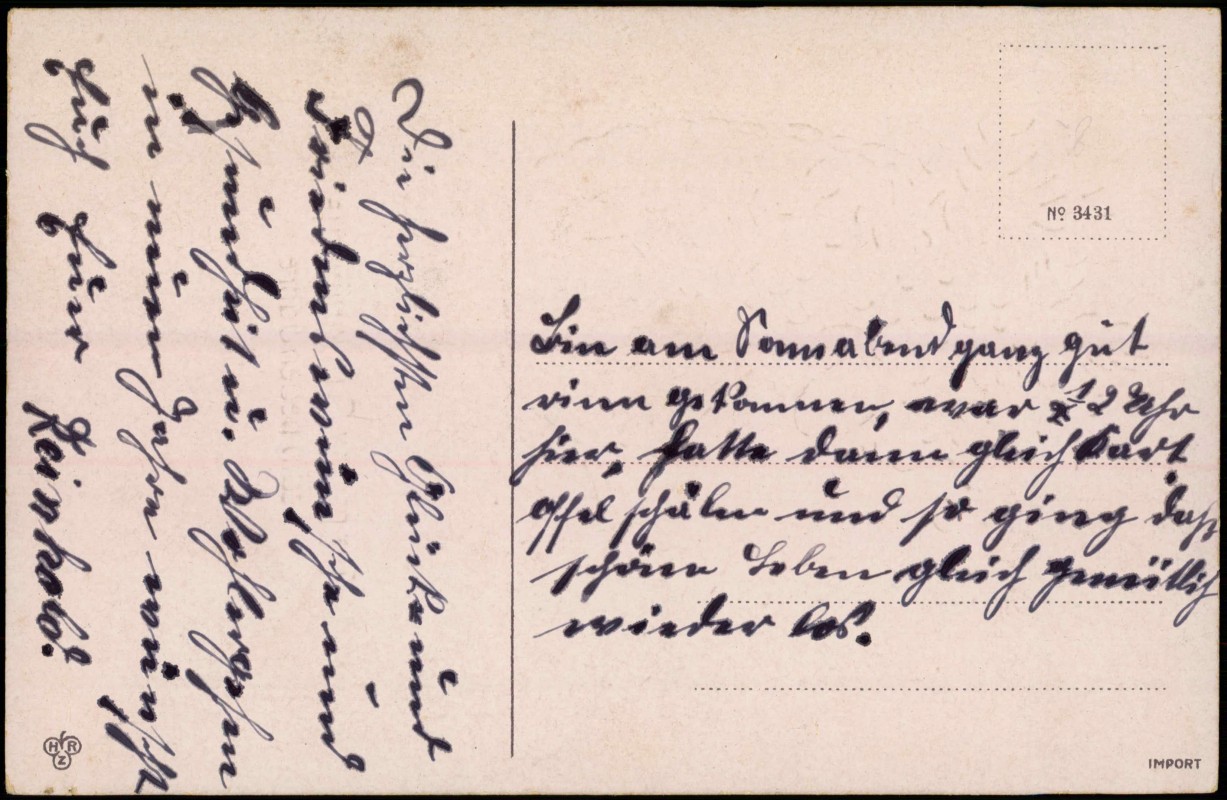 Die herzlichsten Glück und
Friedenswünsche und
Gesundheit u. Wohlergehen
im neuen Jahre wünscht
Euch Euer Reinhold.
Nº 3431
Bin am Sonnabend ganz gut
rinn gekommen, war ½ 2 Uhr
hier, hatte dann gleich Kart
offel schälen und so ging dass
schöne Leben gleich gemütlich
wieder los.
HRZ
IMPORT